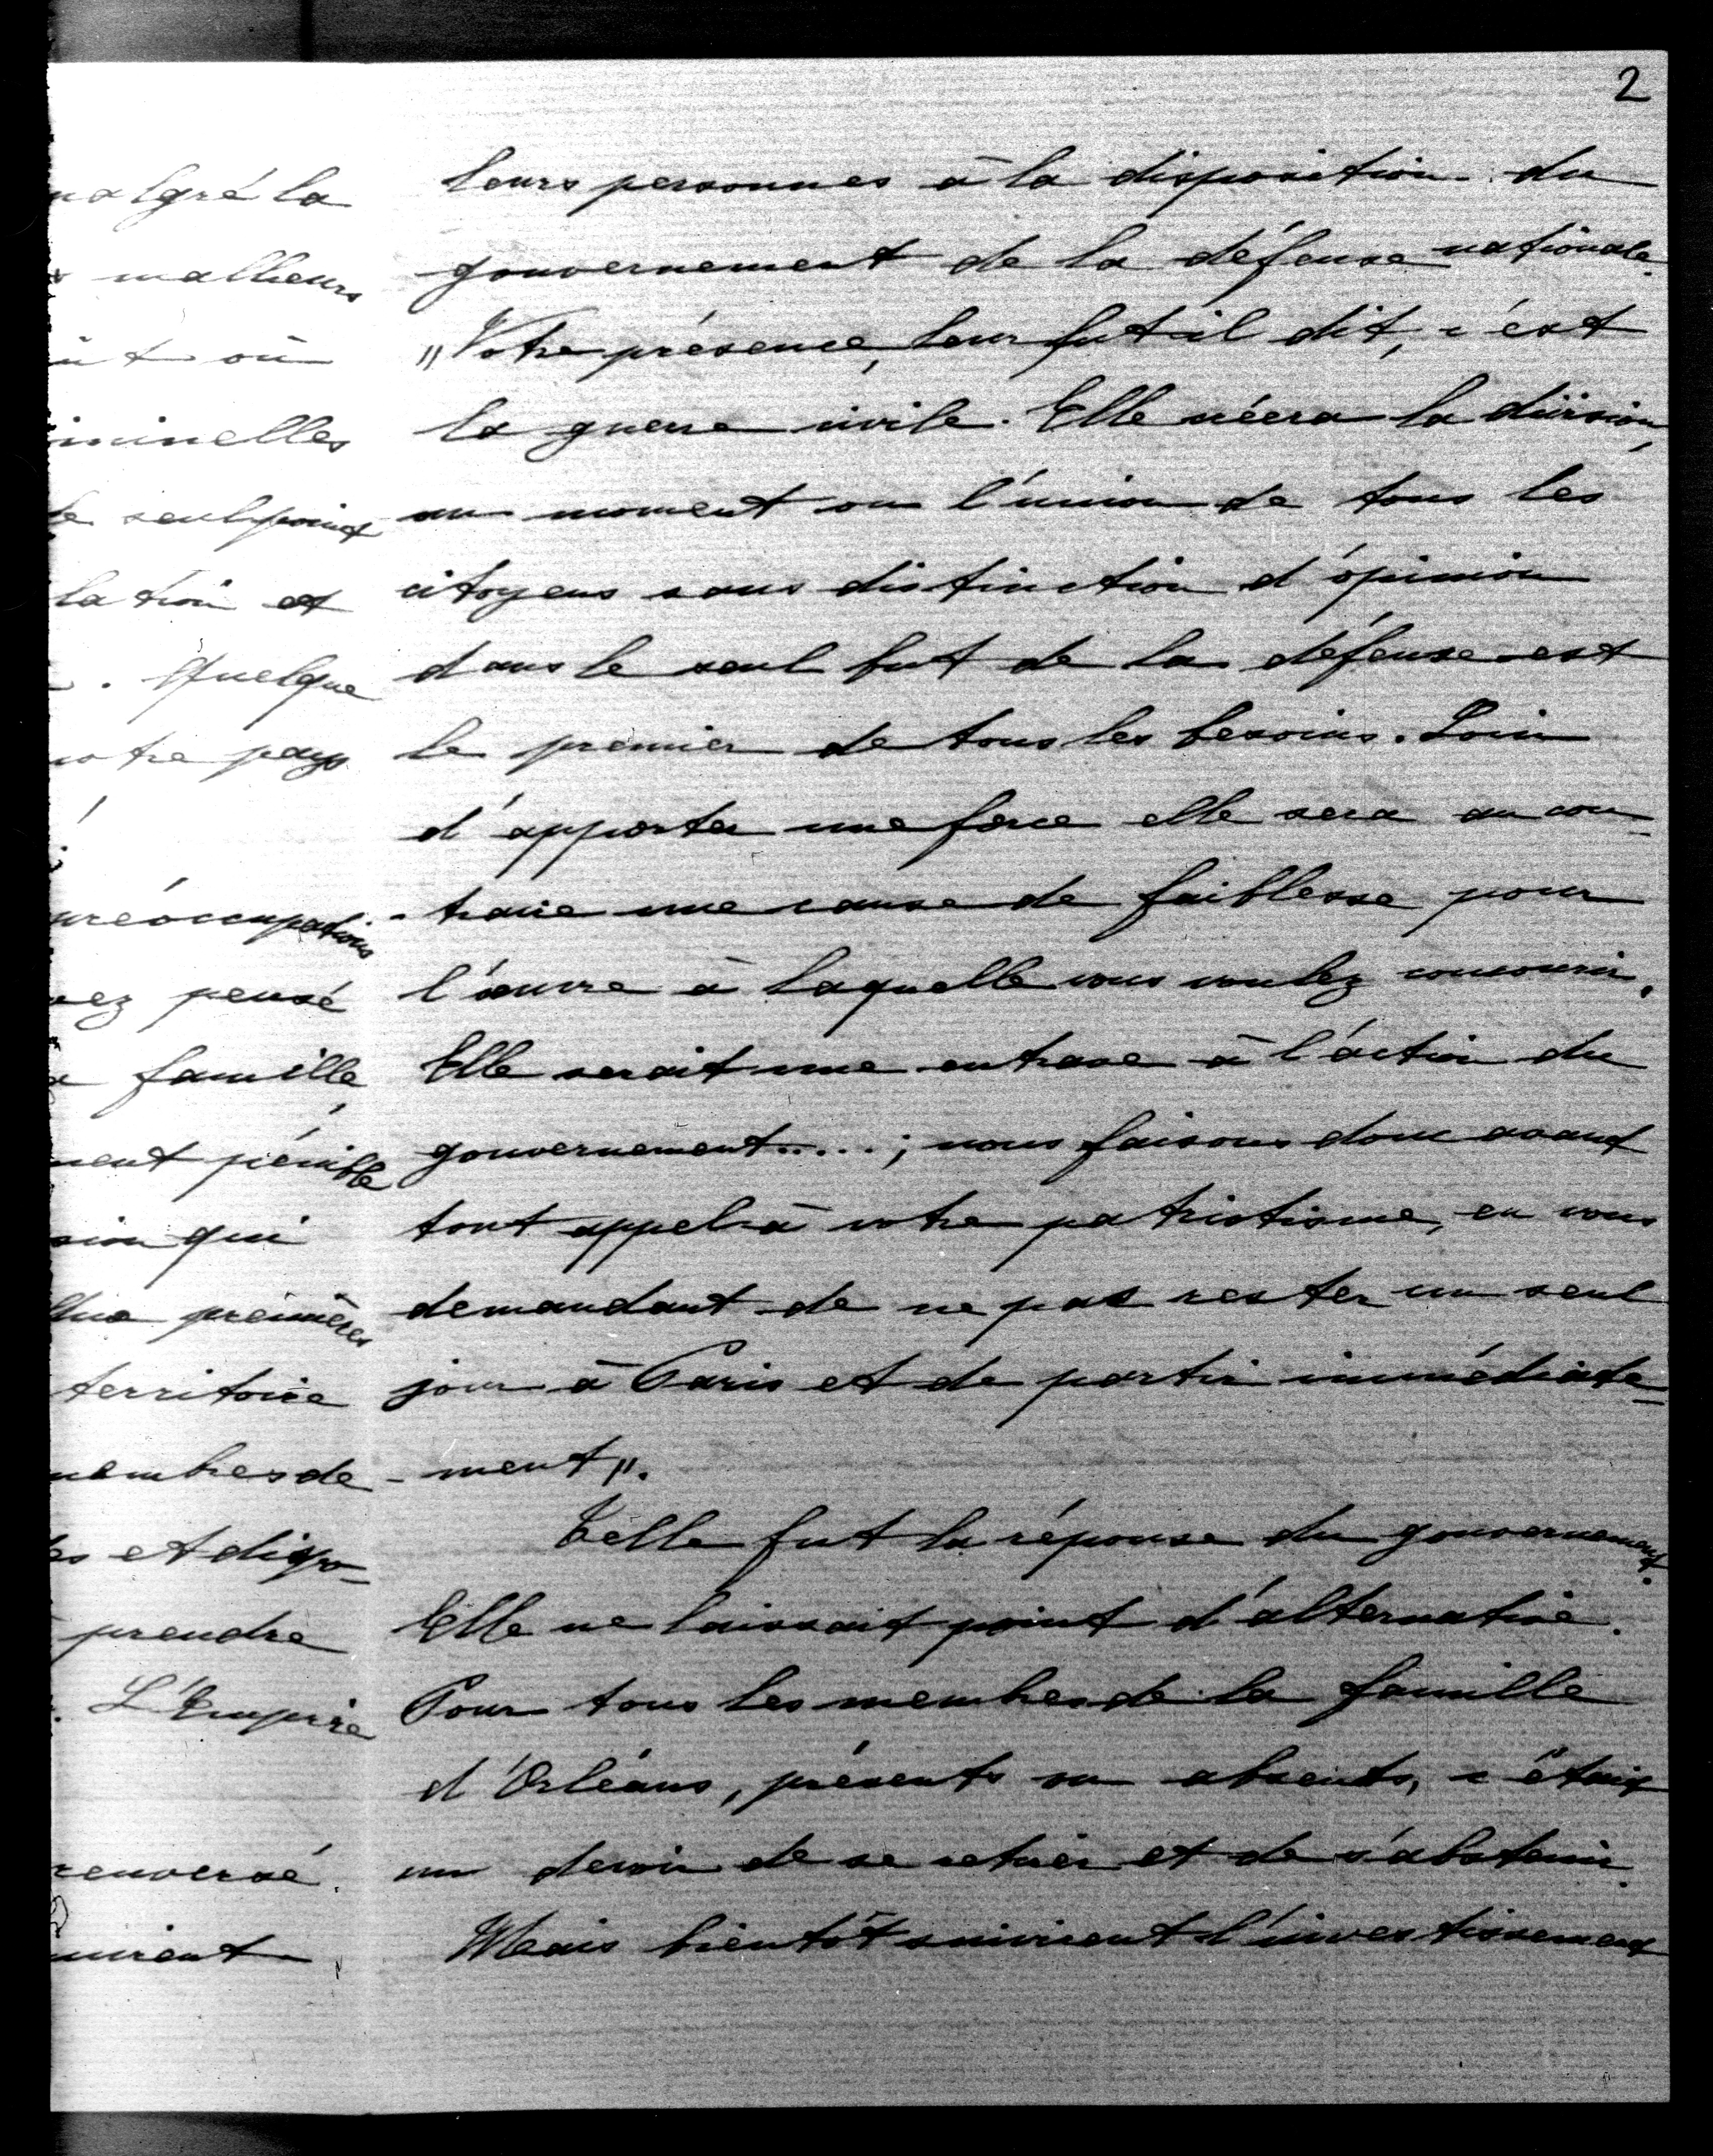 2
malgré la
malheurs
où
iminelles
le seul point
lation et
. Quelque
votre pays
préoccupations
vez pensé
famille,
ment pénible
sion qui
premières
territoire
membres de
et dispo-
prendre
. L'Empire
renversé.
leurs personnes à la disposition du
gouvernement de la défense nationale.
"Votre présence, leur fut il dit, c'est
la guerre civile. Elle créera la division,
au moment ou l'union de tous les
citoyens sans distinction d'opinion
dans le seul but de la défense est
le premier de tous les besoins. Loin
d'apporter une force elle sera au con-
-traire une cause de faiblesse pour
l'œuvre à laquelle vous voulez concourir.
Elle serait une entrave à l'action du
gouvernement.....; nous faisons donc avant
tout appel à votre patriotisme, en vous
demandant de ne pas rester un seul
jour à Paris et de partir immédiate-
-ment".
Telle fut la réponse du gouvernement.
Elle ne laissait point d'alternative.
Pour tous les membres de la famille
d'Orléans, présents ou absents, c'était
un devoir de se retirer et de s'abstenir.
Mais bientôt survinrent l'investissement